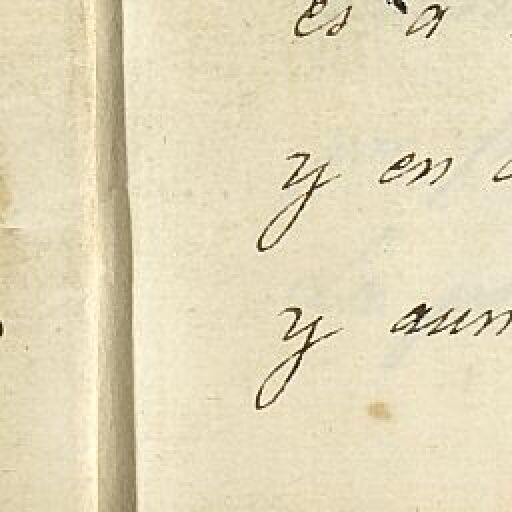 es a
y en
y aun